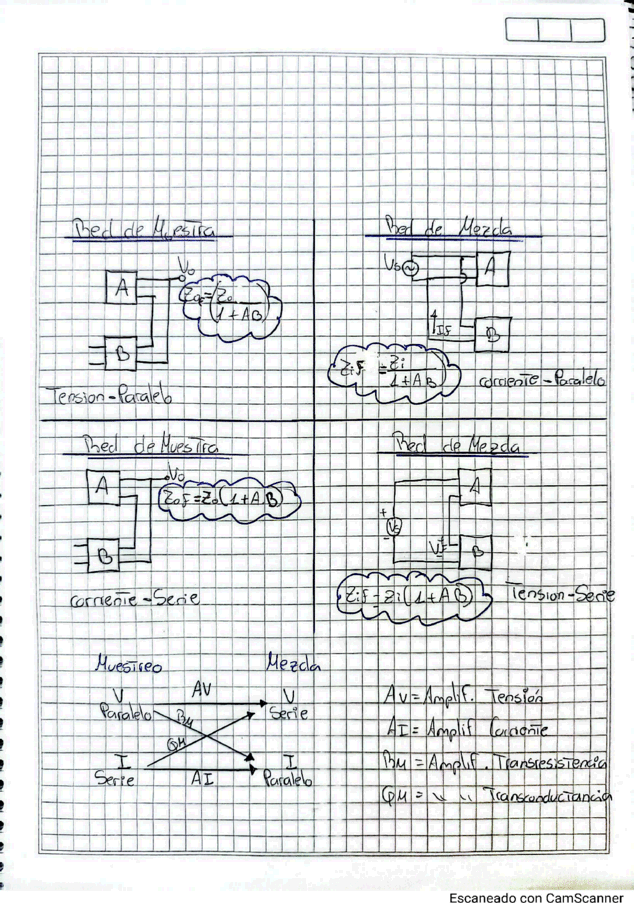 Red de Muestra
Vo
A
Zof = Zo / (1+AB)
B
Tension-Paralelo
Red de Mezcla
Vs
A
If
B
Zif = Zi / 1+AB
corriente-Paralelo
Red de Muestra
Vo
A
Zof=Zo(1+AB)
B
corriente-Serie
Red de Mezcla
A
+
-
B
Zif=Zi(1+AB)
Tension-Serie
Muestreo Mezcla
V AV V
Paralelo RM Serie
GM
I I
Serie AI Paralelo
AV = Amplif. Tensión
AI = Amplif Corriente
RM = Amplif. Transresistencia
GM = " " Transconductancia
Escaneado con CamScanner